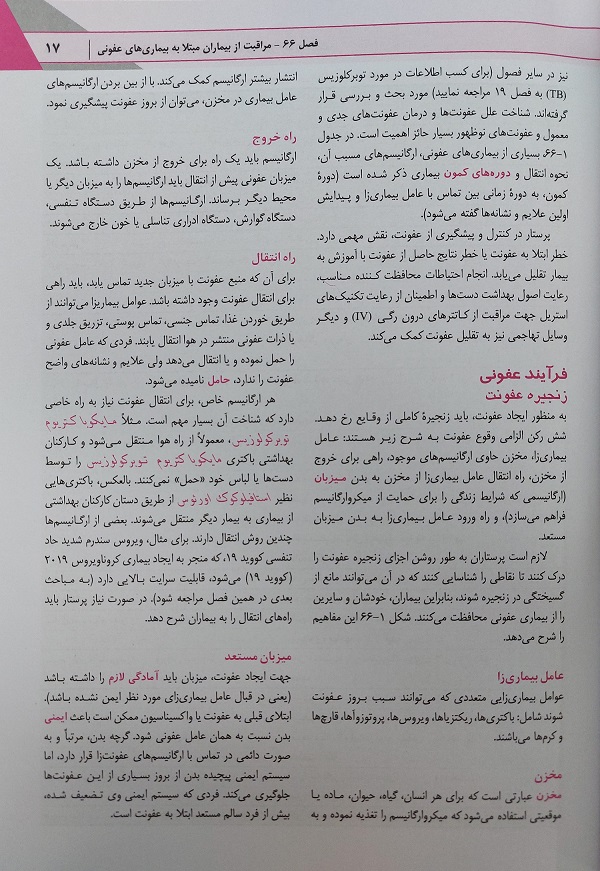 فصل ۶۶ - مراقبت از بیماران مبتلا به بیماری‌های عفونی
۱۷
نیز در سایر فصول (برای کسب اطلاعات در مورد توبرکلوزیس
(TB) به فصل ۱۹ مراجعه نمایید) مورد بحث و بررسی قرار
گرفته‌اند. شناخت علل عفونت‌ها و درمان عفونت‌های جدی و
معمول و عفونت‌های نوظهور بسیار حائز اهمیت است. در جدول
۱-۶۶ بسیاری از بیماری‌های عفونی، ارگانیسم‌های مسبب آن،
نحوه انتقال و دوره‌های کمون بیماری ذکر شده است (دورۀ
کمون، به دورۀ زمانی بین تماس با عامل بیماری‌زا و پیدایش
اولین علایم و نشانه‌ها گفته می‌شود).
پرستار در کنترل و پیشگیری از عفونت، نقش مهمی دارد.
خطر ابتلا به عفونت یا خطر نتایج حاصل از عفونت با آموزش به
بیمار تقلیل می‌یابد. انجام احتیاطات محافظت کننده مناسب،
رعایت اصول بهداشت دست‌ها و اطمینان از رعایت تکنیک‌های
استریل جهت مراقبت از کاتترهای درون رگی (IV) و دیگر
وسایل تهاجمی نیز به تقلیل عفونت کمک می‌کند.
فرآیند عفونی
زنجیره عفونت
به منظور ایجاد عفونت، باید زنجیرۀ کاملی از وقایع رخ دهد.
شش رکن الزامی وقوع عفونت به شرح زیر هستند: عامل
بیماری‌زا، مخزن حاوی ارگانیسم‌های موجود، راهی برای خروج
از مخزن، راه انتقال عامل بیماری‌زا از مخزن به بدن میزبان
(ارگانیسمی که شرایط زندگی را برای حمایت از میکروارگانیسم
فراهم می‌سازد)، و راه ورود عامل بیماری‌زا به بدن میزبان
مستعد.
لازم است پرستاران به طور روشن اجزای زنجیره عفونت را
درک کنند تا نقاطی را شناسایی کنند که در آن می‌توانند مانع از
گسیختگی در زنجیره شوند، بنابراین بیماران، خودشان و سایرین
را از بیماری عفونی محافظت می‌کنند. شکل ۱-۶۶ این مفاهیم
را شرح می‌دهد.
عامل بیماری‌زا
عوامل بیماری‌زایی متعددی که می‌توانند سبب بروز عفونت
شوند شامل: باکتری‌ها، ریکتزیاها، ویروس‌ها، پروتوزوآها، قارچ‌ها
و کرم‌ها می‌باشند.
مخزن
مخزن عبارتی است که برای هر انسان، گیاه، حیوان، ماده یا
موقعیتی استفاده می‌شود که میکروارگانیسم را تغذیه نموده و به
انتشار بیشتر ارگانیسم کمک می‌کند. با از بین بردن ارگانیسم‌های
عامل بیماری در مخزن، می‌توان از بروز عفونت پیشگیری نمود.
راه خروج
ارگانیسم باید یک راه برای خروج از مخزن داشته باشد. یک
میزبان عفونی پیش از انتقال باید ارگانیسم‌ها را به میزبان دیگر یا
محیط دیگر برساند. ارگانیسم‌ها از طریق دستگاه تنفسی،
دستگاه گوارش، دستگاه ادراری تناسلی یا خون خارج می‌شوند.
راه انتقال
برای آن که منبع عفونت با میزبان جدید تماس یابد، باید راهی
برای انتقال عفونت وجود داشته باشد. عوامل بیماریزا می‌توانند از
طریق خوردن غذا، تماس جنسی، تماس پوستی، تزریق جلدی و
یا ذرات عفونی منتشر در هوا انتقال یابند. فردی که عامل عفونی
را حمل نموده و یا انتقال می‌دهد ولی علایم و نشانه‌های واضح
عفونت را ندارد، حامل نامیده می‌شود.
هر ارگانیسم خاص، برای انتقال عفونت نیاز به راه خاصی
دارد که شناخت آن بسیار مهم است. مثلاً مایکوباکتریوم
توبرکولوزیس، معمولاً از راه هوا منتقل می‌شود و کارکنان
بهداشتی باکتری مایکوباکتریوم توبرکولوزیس را توسط
دست‌ها یا لباس خود «حمل» نمی‌کنند. بالعکس، باکتری‌هایی
نظیر استافیلوکوک اورئوس از طریق دستان کارکنان بهداشتی
از بیماری به بیمار دیگر منتقل می‌شوند. بعضی از ارگانیسم‌ها
چندین روش انتقال دارند. برای مثال، ویروس سندرم شدید حاد
تنفسی کووید ۱۹، که منجر به ایجاد بیماری کروناویروس ۲۰۱۹
(کووید ۱۹) می‌شود، قابلیت سرایت بالایی دارد (به مباحث
بعدی در همین فصل مراجعه شود). در صورت نیاز پرستار باید
راه‌های انتقال را به بیماران شرح دهد.
میزبان مستعد
جهت ایجاد عفونت، میزبان باید آمادگی لازم را داشته باشد
(یعنی در قبال عامل بیماری‌زای مورد نظر ایمن نشده باشد).
ابتلای قبلی به عفونت یا واکسیناسیون ممکن است باعث ایمنی
بدن نسبت به همان عامل عفونی شود. گرچه بدن، مرتباً و به
صورت دائمی در تماس با ارگانیسم‌های عفونت‌زا قرار دارد، اما
سیستم ایمنی پیچیده بدن از بروز بسیاری از این عفونت‌ها
جلوگیری می‌کند. فردی که سیستم ایمنی وی تضعیف شده،
بیش از فرد سالم مستعد ابتلا به عفونت است.